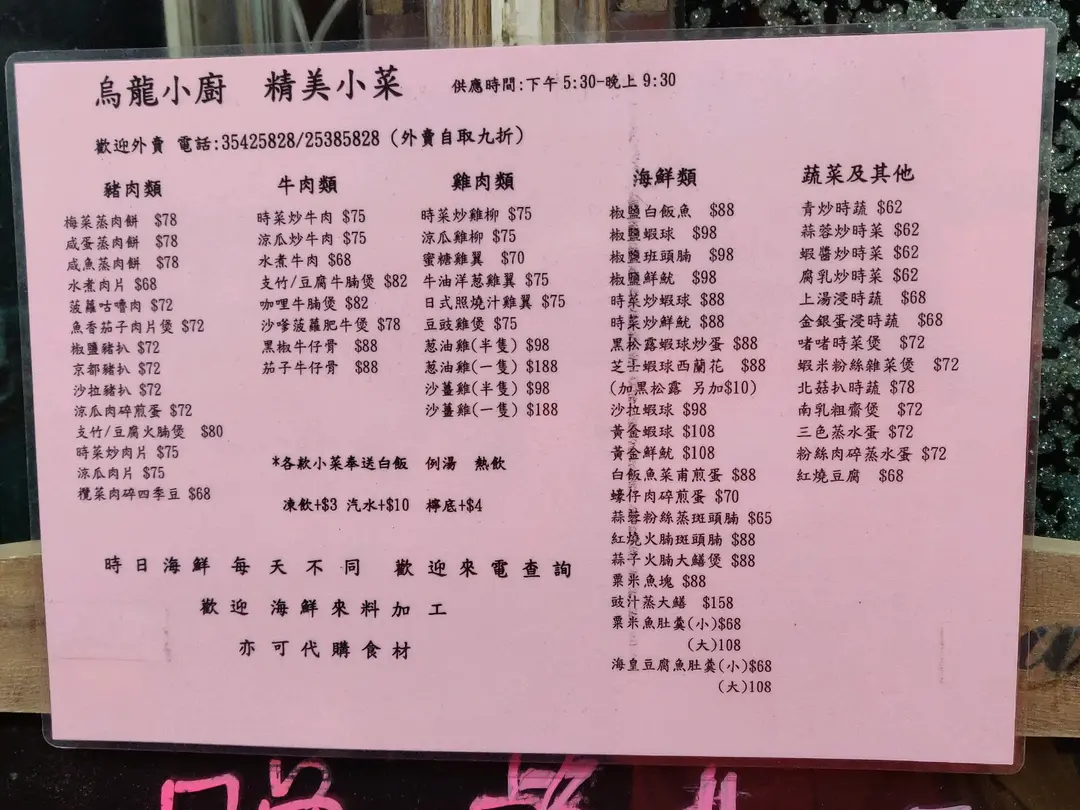 烏龍小廚 精美小菜 供應時間:下午5:30-晚上9:30
歡迎外賣 電話:35425828/25385828 (外賣自取九折)
豬肉類
梅菜蒸肉餅 $78
咸蛋蒸肉餅 $78
咸魚蒸肉餅 $78
水煮肉片 $68
菠蘿咕嚕肉 $72
魚香茄子肉片煲 $72
椒鹽豬扒 $72
京都豬扒 $72
沙拉豬扒 $72
涼瓜肉碎煎蛋 $72
支竹/豆腐火腩煲 $80
時菜炒肉片 $75
涼瓜肉片 $75
欖菜肉碎四季豆 $68
牛肉類
時菜炒牛肉 $75
涼瓜炒牛肉 $75
水煮牛肉 $68
支竹/豆腐牛腩煲 $82
咖哩牛腩煲 $82
沙嗲菠蘿肥牛煲 $78
黑椒牛仔骨 $88
茄子牛仔骨 $88
雞肉類
時菜炒雞柳 $75
涼瓜雞柳 $75
蜜糖雞翼 $70
牛油洋葱雞翼 $75
日式照燒汁雞翼 $75
豆豉雞煲 $75
葱油雞(半隻) $98
葱油雞(一隻) $188
沙薑雞(半隻) $98
沙薑雞(一隻) $188
*各款小菜奉送白飯 例湯 熱飲
凍飲+$3 汽水+$10 檸底+$4
海鮮類
椒鹽白飯魚 $88
椒鹽蝦球 $98
椒鹽班頭腩 $98
椒鹽鮮魷 $98
時菜炒蝦球 $88
時菜炒鮮魷 $88
黑松露蝦球炒蛋 $88
芝士蝦球西蘭花 $88
(加黑松露 另加$10)
沙拉蝦球 $98
黃金蝦球 $108
黃金鮮魷 $108
白飯魚菜甫煎蛋 $88
蠔仔肉碎煎蛋 $70
蒜蓉粉絲蒸斑頭腩 $65
紅燒火腩斑頭腩 $88
蒜子火腩大鱔煲 $88
粟米魚塊 $88
豉汁蒸大鱔 $158
粟米魚肚羹(小)$68
(大)108
海皇豆腐魚肚羹(小)$68
(大)108
蔬菜及其他
青炒時蔬 $62
蒜蓉炒時菜 $62
蝦醬炒時菜 $62
腐乳炒時菜 $62
上湯浸時蔬 $68
金銀蛋浸時蔬 $68
啫啫時菜煲 $72
蝦米粉絲雜菜煲 $72
北菇扒時蔬 $78
南乳粗齋煲 $72
三色蒸水蛋 $72
粉絲肉碎蒸水蛋 $72
紅燒豆腐 $68
時日海鮮 每天不同 歡迎來電查詢
歡迎 海鮮來料加工
亦可代購食材